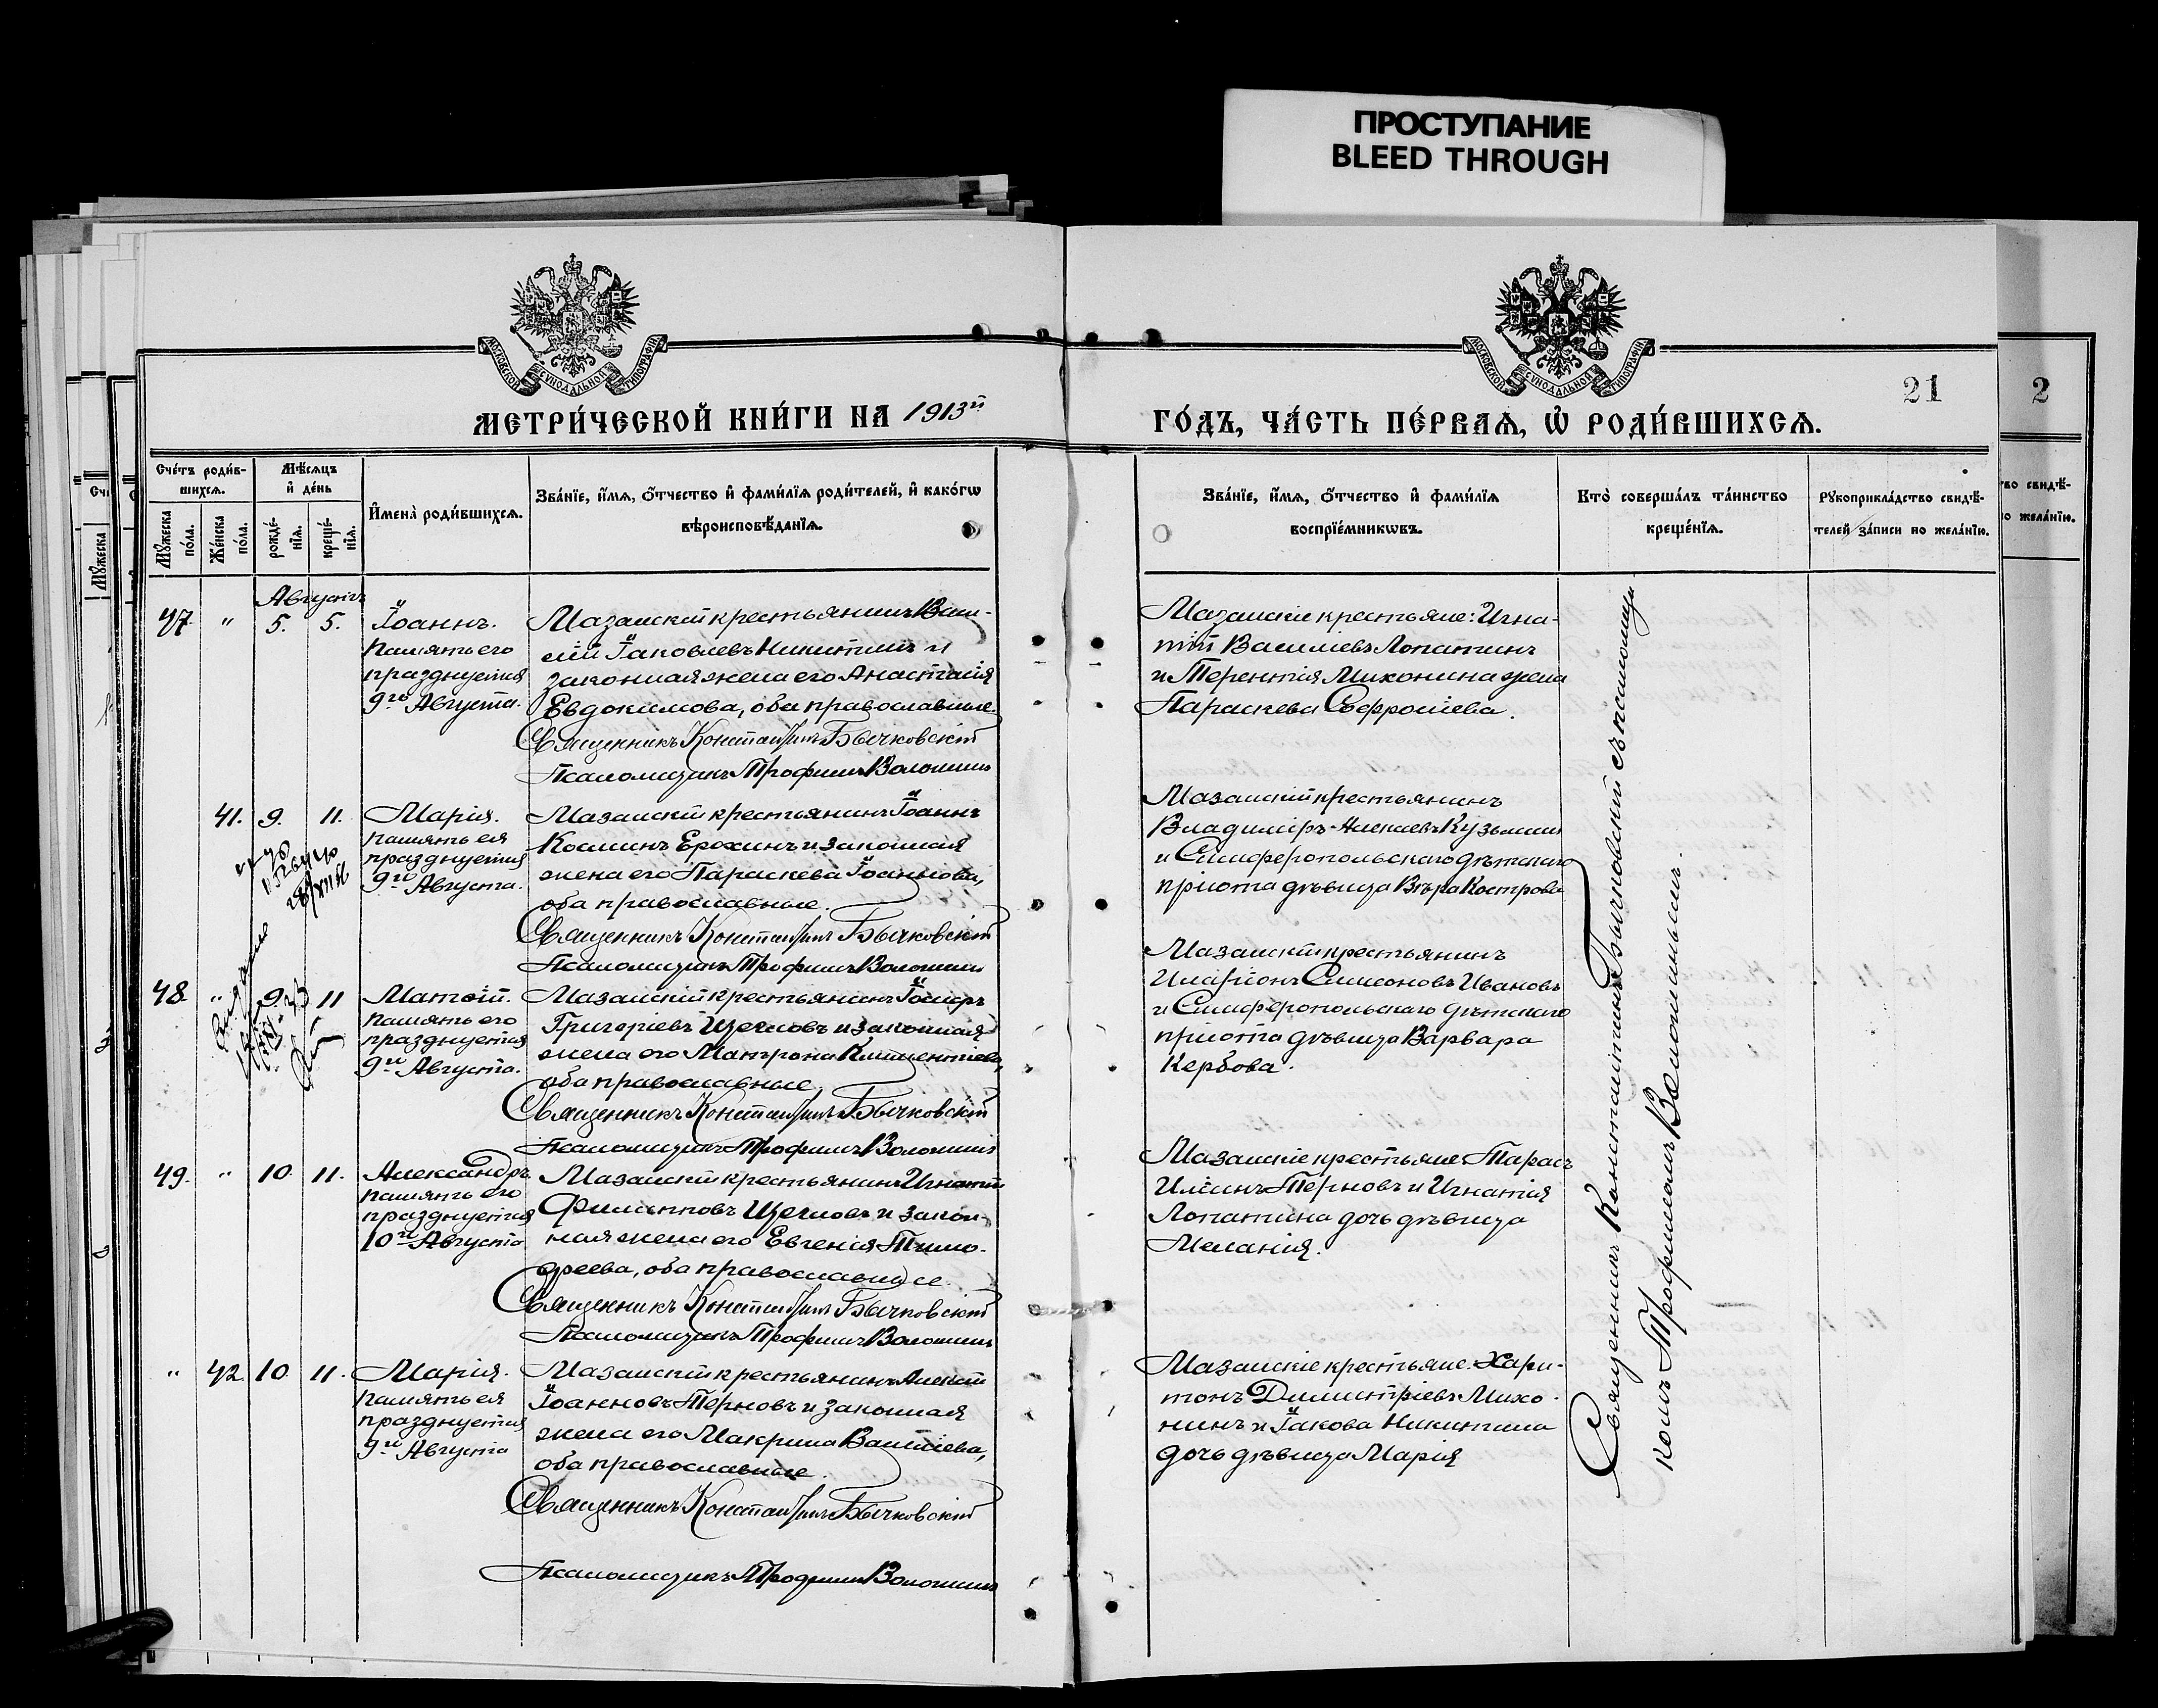 ПРОСТУПАНИЕ
BLEED THROUGH
МОСКОВСКОЙ СУНОДАЛЬНОЙ ТИПОГРАФІИ
МОСКОВСКОЙ СУНОДАЛЬНОЙ ТИПОГРАФІИ
21
2
МЕТРИ́ЧЕСКОЙ КНИ́ГИ НА 1913й
ГО́ДЪ, ЧА́СТЬ ПЕ́РВАѦ, Ѡ҆ РОДИ́ВШИХСѦ.
Сче́тъ роди́в-
шихсѧ.
Мѣ́сѧцъ
и҆ де́нь
Мꙋ́жеска
по́ла.
Же́нска
по́ла.
рожде́-
нїѧ.
креще́-
нїѧ.
И҆мена̀ роди́вшихсѧ.
Зва́нїе, и҆́мѧ, ѻ҆́тчество и҆ фами́лїѧ роди́телей, и҆ како́гѡ
вѣроисповѣ́данїѧ.
Зва́нїе, и҆́мѧ, ѻ҆́тчество и҆ фами́лїѧ
воспрїе́мникѡвъ.
Кто̀ соверша́лъ та́инство
креще́нїѧ.
Рꙋкоприкла́дство свидѣ́-
телей за́писи по жела́нїю.
Августъ
47. " 5. 5. Іоаннъ.
Память его
празднуется
9го Августа.
Мазанскій крестьянинъ Васи-
лій Іаковлевъ Никитинъ и
законная жена его Анастасія
Евдокимова, оба православные.
Священникъ Константинъ Бычковскій
Псаломщикъ Трофимъ Волошинъ
Мазанскіе крестьяне: Игна-
тій Василіевъ Лопатинъ
и Терентія Михонина жена
Параскева Ефросіева.
41. 9. 11. Марія.
Память ея
празднуется
9го Августа.
Мазанскій крестьянинъ Іоаннъ
Космин Ерохинъ и законная
жена его Параскева Іоаннова,
оба православные.
Священникъ Константинъ Бычковскій
Псаломщикъ Трофимъ Волошинъ
Мазанскій крестьянинъ
Владиміръ Алексіевъ Кузьминъ
и Симферопольскаго дѣтскаго
пріюта дѣвица Вѣра Кострова
48. " 9. 11 Матѳій.
Память его
празднуется
9го Августа.
Мазанскій крестьянинъ Іосифъ
Григоріевъ Щегловъ и законная
жена его Матрона Климентіева,
оба православные.
Священникъ Константинъ Бычковскій
Псаломщикъ Трофимъ Волошинъ
Мазанскій крестьянинъ
Иларіонъ Симеоновъ Ивановъ
и Симферопольскаго дѣтскаго
пріюта дѣвица Варвара
Кербова.
49. " 10. 11. Александръ.
Память его
празднуется
10го Августа
Мазанскій крестьянинъ Игнатій
Филипповъ Щегловъ и закон-
ная жена его Евгенія Тимо-
феева, оба православные.
Священникъ Константинъ Бычковскій
Псаломщикъ Трофимъ Волошинъ
Мазанскіе крестьяне: Тарасъ
Иліинъ Терновъ и Игнатія
Лопатина дочь дѣвица
Меланія.
" 42. 10. 11. Марія.
Память ея
празднуется
9го Августа
Мазанскій крестьянинъ Алексій
Іоанновъ Терновъ и законная
жена его Макрина Василіева,
оба православные.
Священникъ Константинъ Бычковскій
Псаломщикъ Трофимъ Волошинъ
Мазанскіе крестьяне: Хари-
тонъ Димитріевъ Михо-
нинъ и Іакова Никитина
дочь дѣвица Марія
Священникъ Константинъ Бычковскій съ псаломщи
комъ Трофимомъ Волошинымъ.